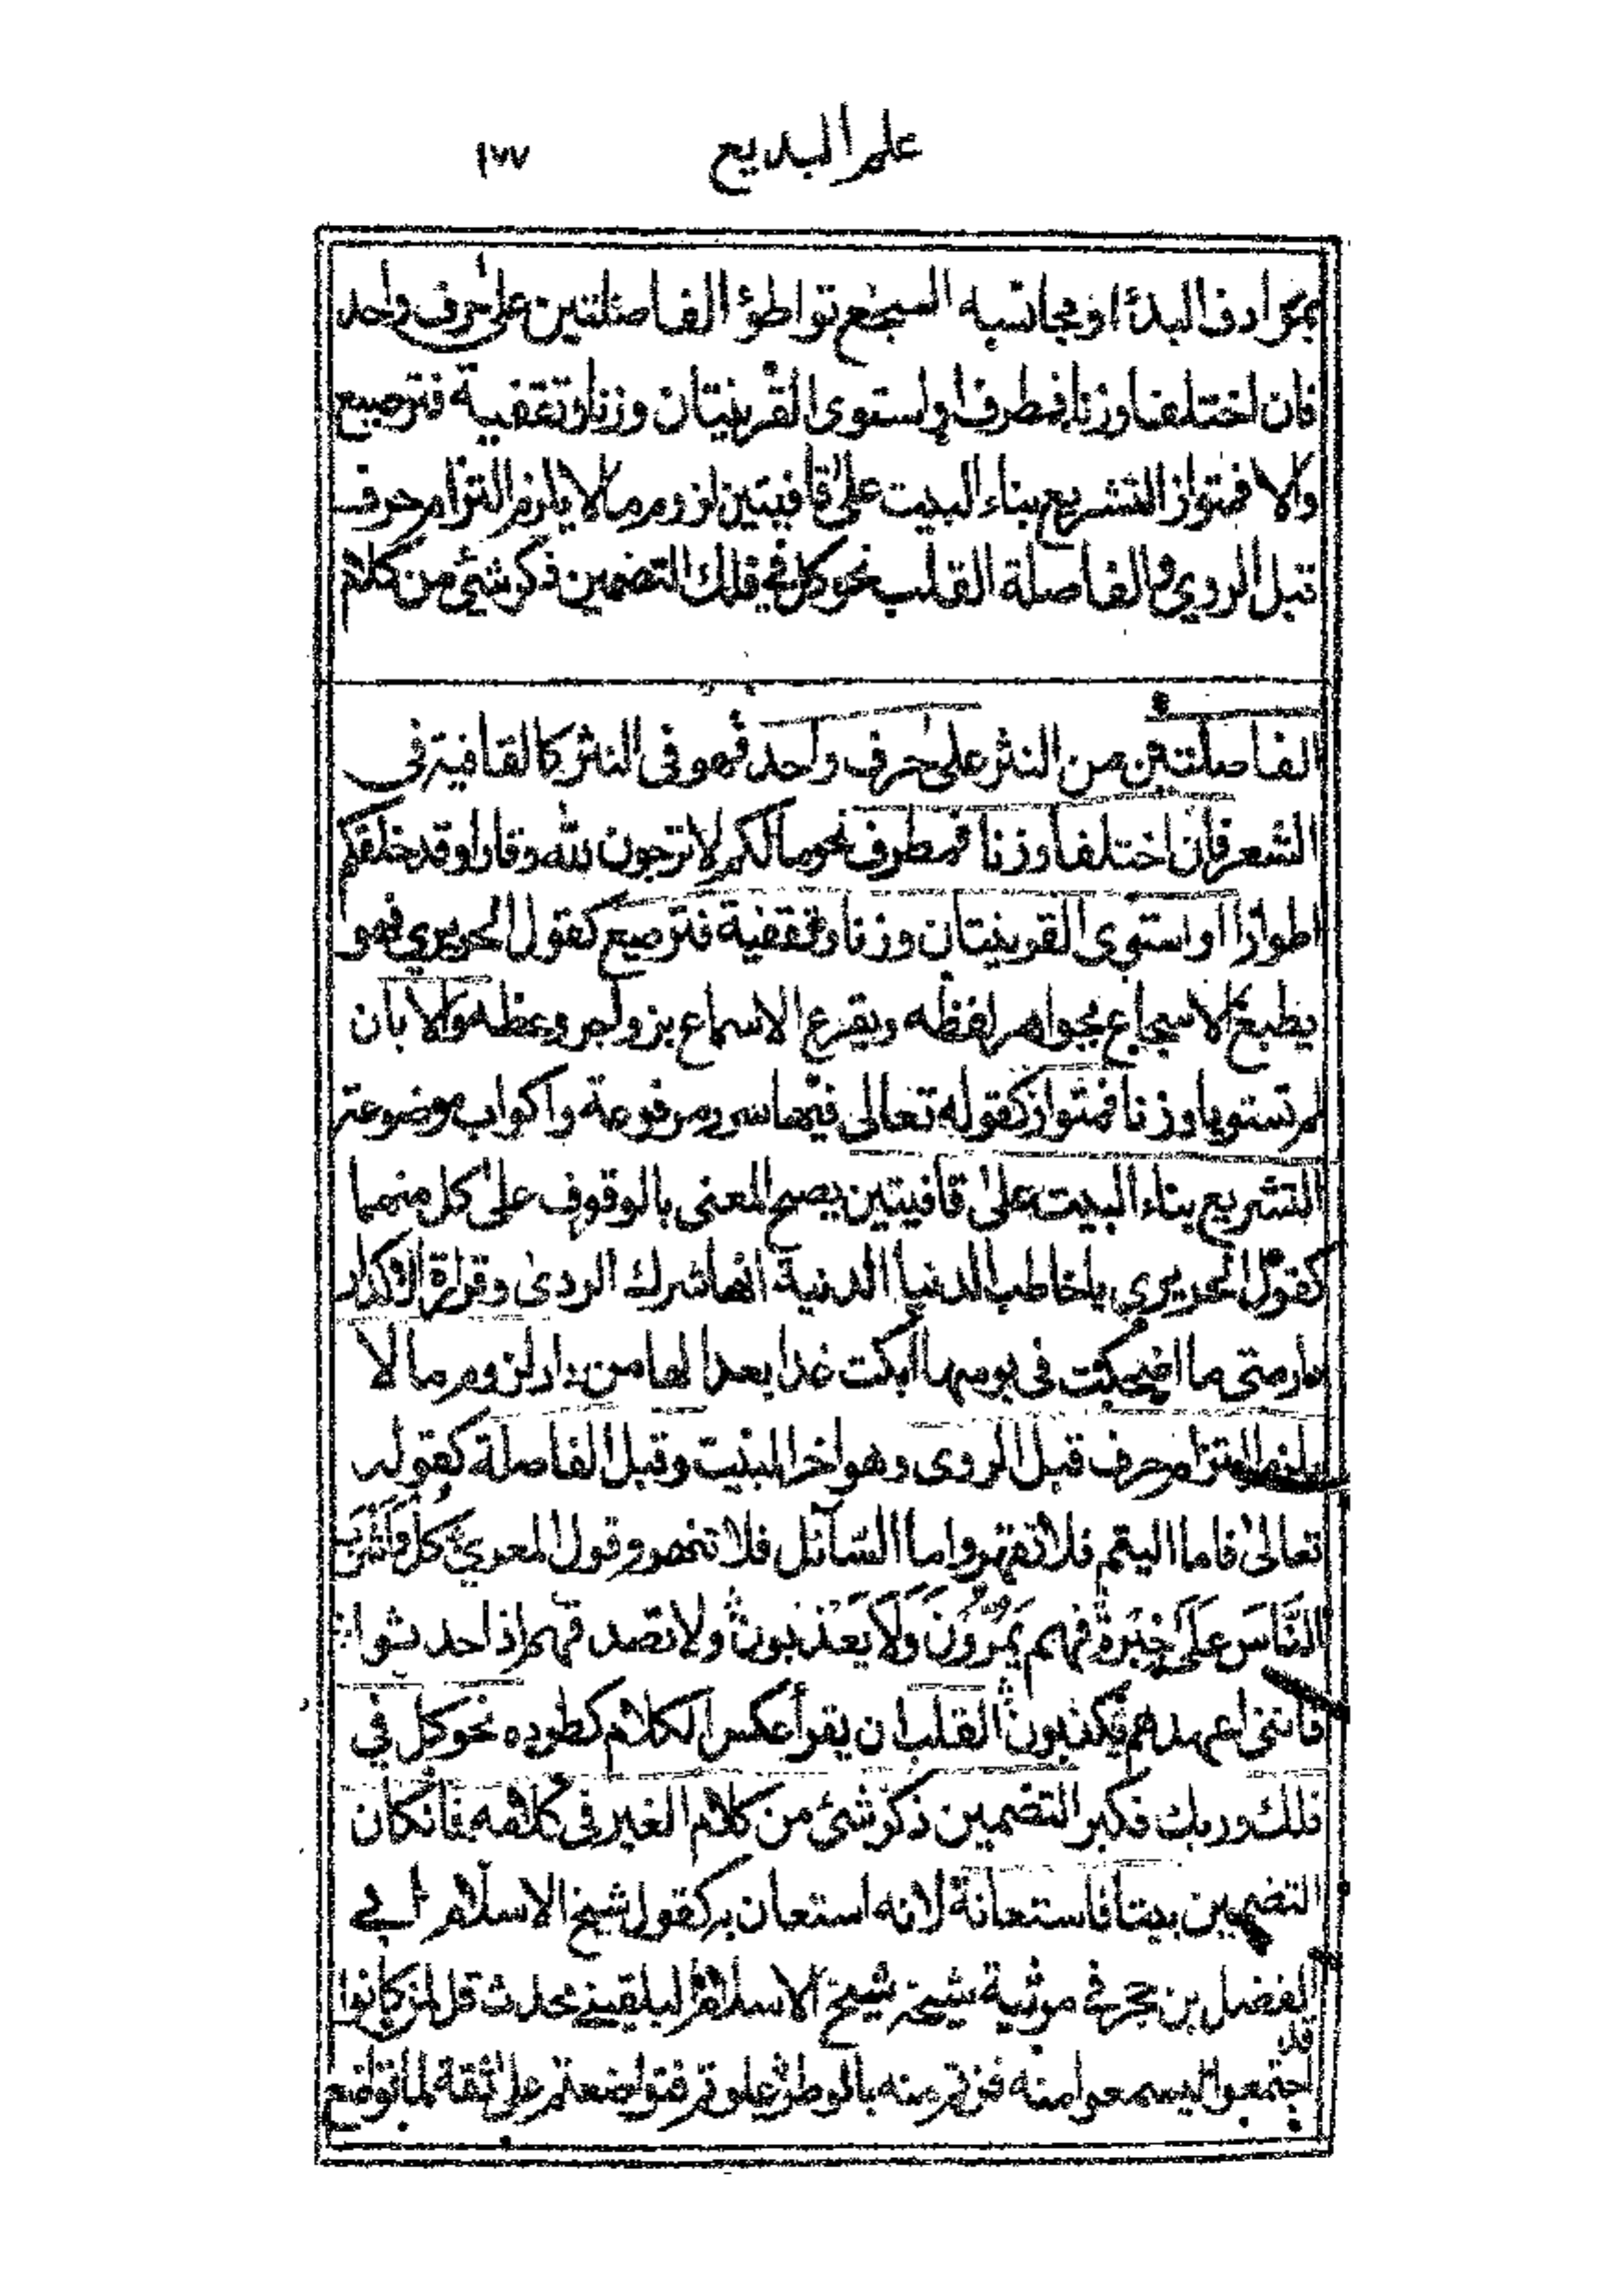 علم البديع ١٧٧
بمرادف البدء او مجانسه السجع تواطؤ الفاصلتين على حرف واحد
فان اختلفا وزنا فمطرف او استوى القرينتان وزنا وتقفية فترصيع
والا فمتواز التشريع بناء البيت على قافيتين لزوم ما لا يلزم التزام حرف
قبل الروي والفاصلة القلب نحو كل في فلك التضمين ذكر شئ من كلام
الفاصلتين من النثر على حرف واحد فهو فى النثر كالقافية فى
الشعر فان اختلفا وزنا فمطرف نحو ما لكم لا ترجون لله وقارا وقد خلقكم
اطوارا او استوى القرينتان وزنا وتقفية فترصيع كقول الحريري فهو
يطبع الاسجاع بجواهر لفظه ويقرع الاسماع بزواجر وعظه والا بان
لم تستويا وزنا فمتواز كقوله تعالى فيها سرر مرفوعة واكواب موضوعة
التشريع بناء البيت على قافيتين يصح المعنى بالوقوف على كل منهما
كقول الحريري يا خاطب الدنيا الدنية انها شرك الردى وقرارة الاكدار
دار متى ما اضحكت فى يومها ابكت غدا بعدا لها من دار لزوم ما لا
يلزم التزام حرف قبل الروى وهو اخر البيت وقبل الفاصلة كقوله
تعالى فاما اليتيم فلا تقهر واما السائل فلا تنهر وقول المعري كل واشرب
النَّاسَ عَلَى خِبْرَةٍ فهم يَمُرُّونَ وَلَا يَعْذُبون ولا تصدقهم اذا حدثوا
فانني اعهدهم يكذبون القلب ان يقرأ عكس الكلام كطرده نحو كل في
فلك وربك فكبر التضمين ذكر شئ من كلام الغير فى كلامه فانكان
التضمين بيتا فاستعانة لانه استعان به كقول شيخ الاسلام ابي
الفضل بن حجر في مرثية شيخه شيخ الاسلام البلقيني محدث قل لمن كانوا
قد
اجتمعوا ليسمعوا منه فزتم منه بالوطر علوتم فتواضعتم على ثقة لما تواضع